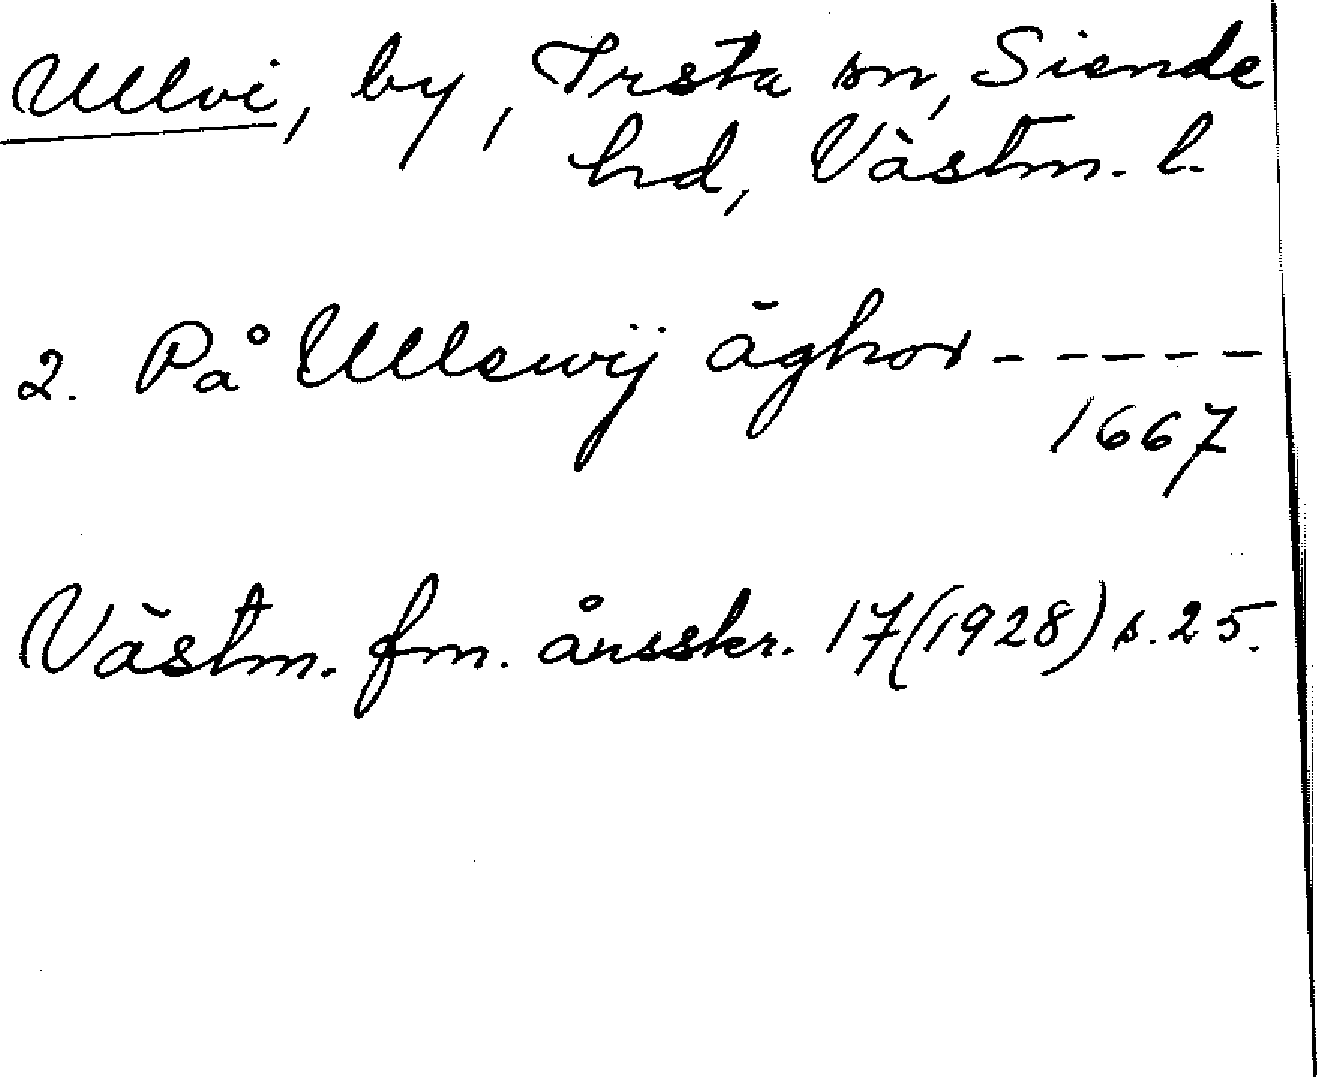 Ullvi, by, Irsta sn, Siende
hd, Västm. l.
2. På Ullewij äghor - - - - - -
1667
Västm. fm. årsskr. 17(1928) s. 25.